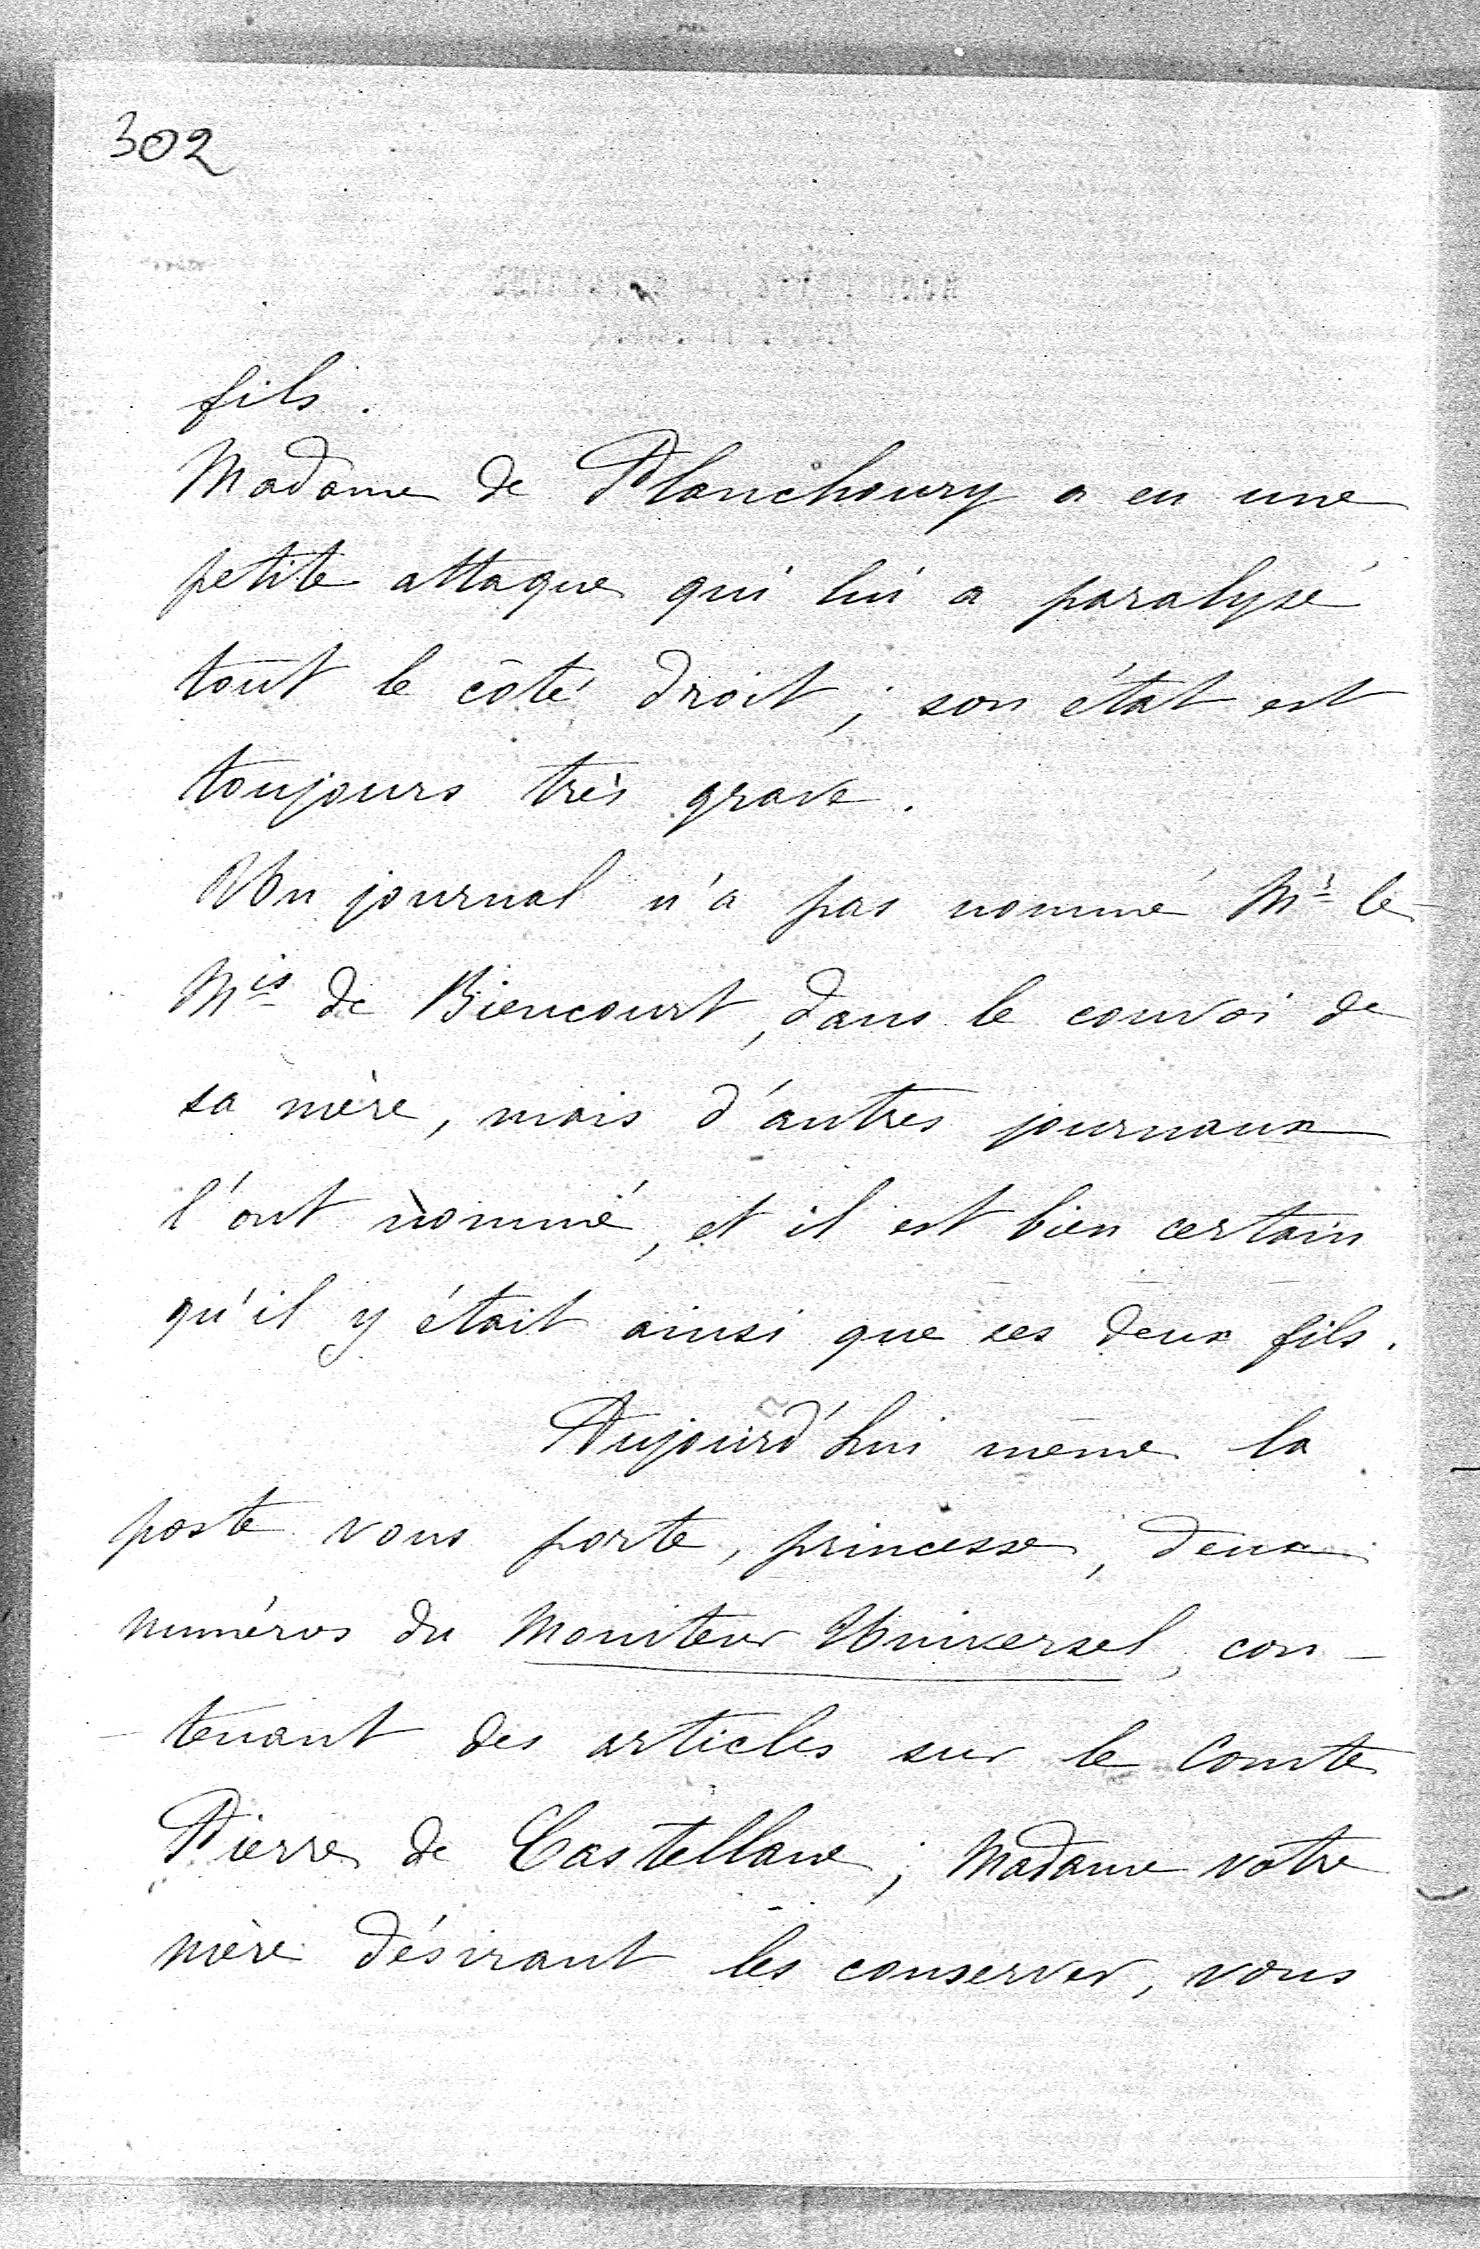 302
fils.
Madame de Planchoury a eu une
petite attaque qui lui a paralysé
tout le côté droit ; son état est
toujours très grave.
Un journal n'a pas nommé Mr le
Mis de Biencourt, dans le convoi de
sa mère, mais d'autres journaux
l'ont nommé, et il est bien certain
qu'il y était ainsi que ses deux fils.
Aujourd'hui même la
poste vous porte, princesse, deux
numéros du Moniteur Universel, con-
-tenant des articles sur le Comte
Pierre de Castellane ; Madame votre
mère désirant les conserver, vous